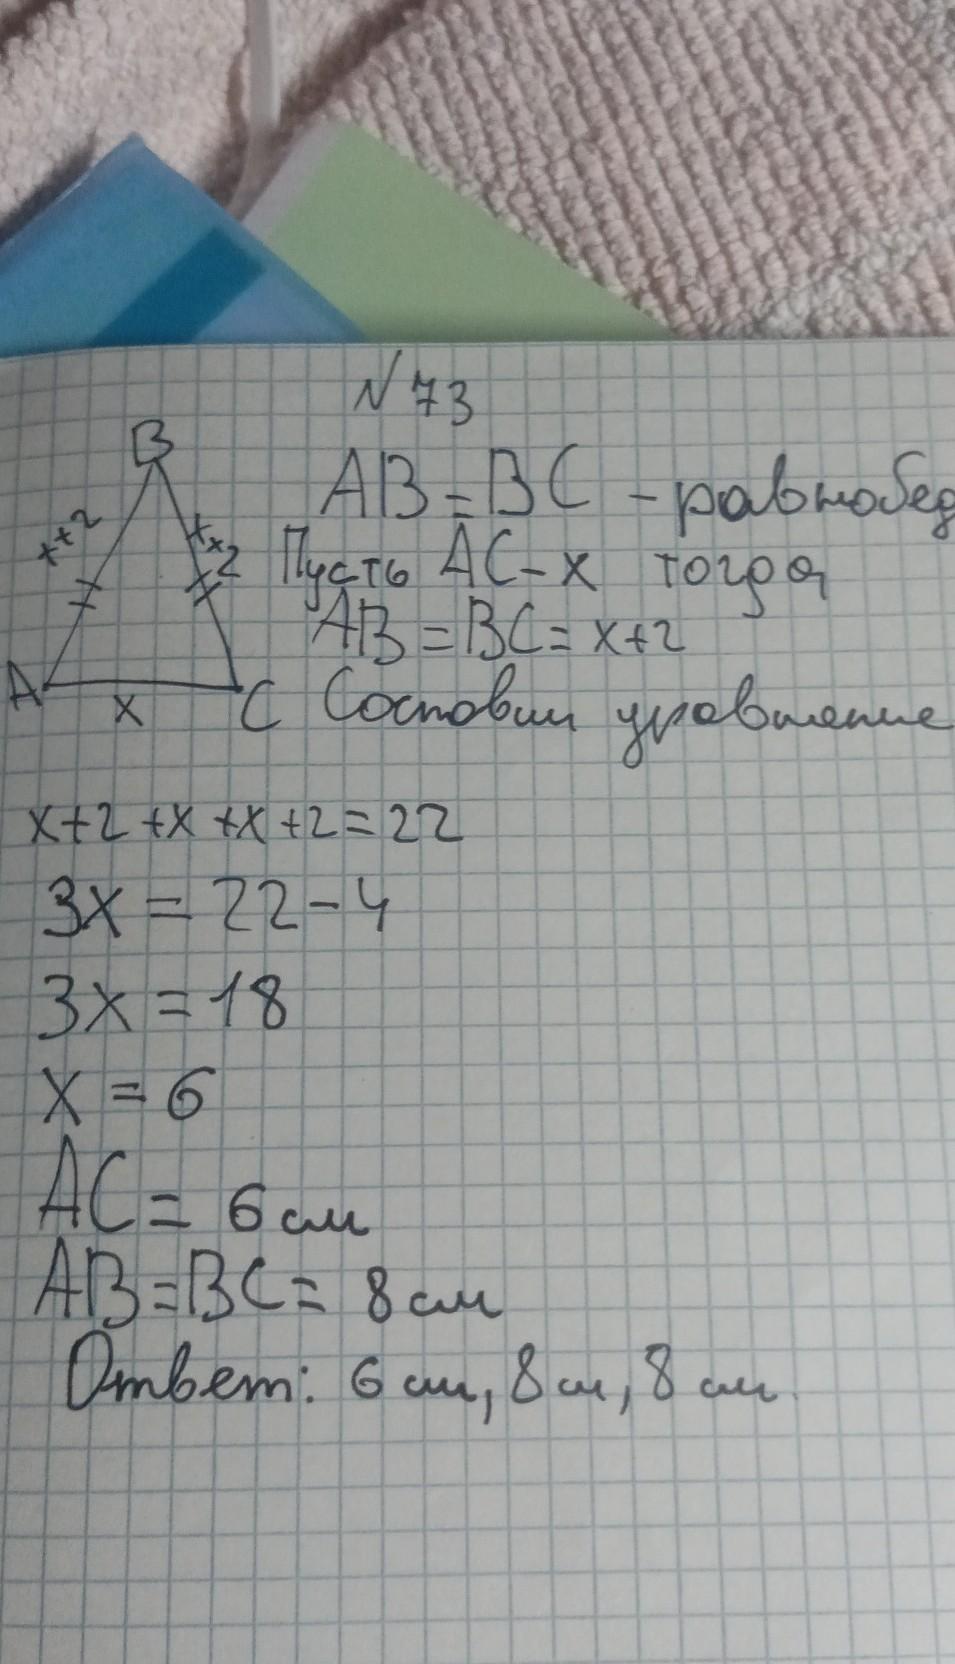 № 73
B
AB = BC - равнобед
x+2
x+2
Пусть AC - x тогда
AB = BC = x+2
A
x
C
Составим уравнение
x+2+x+x+2=22
3x = 22-4
3x = 18
x = 6
AC = 6 см
AB = BC = 8 см
Ответ: 6 см, 8 см, 8 см.